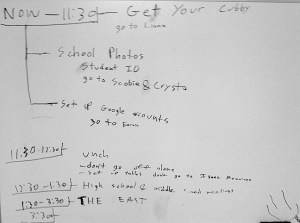 NOW - 11:30 Get Your Cubby
go to
School Photos
Student ID
go to Scobie & Crysta
Set up Google accounts
go to
11:30-12:30 unch
- don't go alone
- set up tables don't go to
12:30-1:30 High school & middle
1:30-3:30 THE EAST
3:30